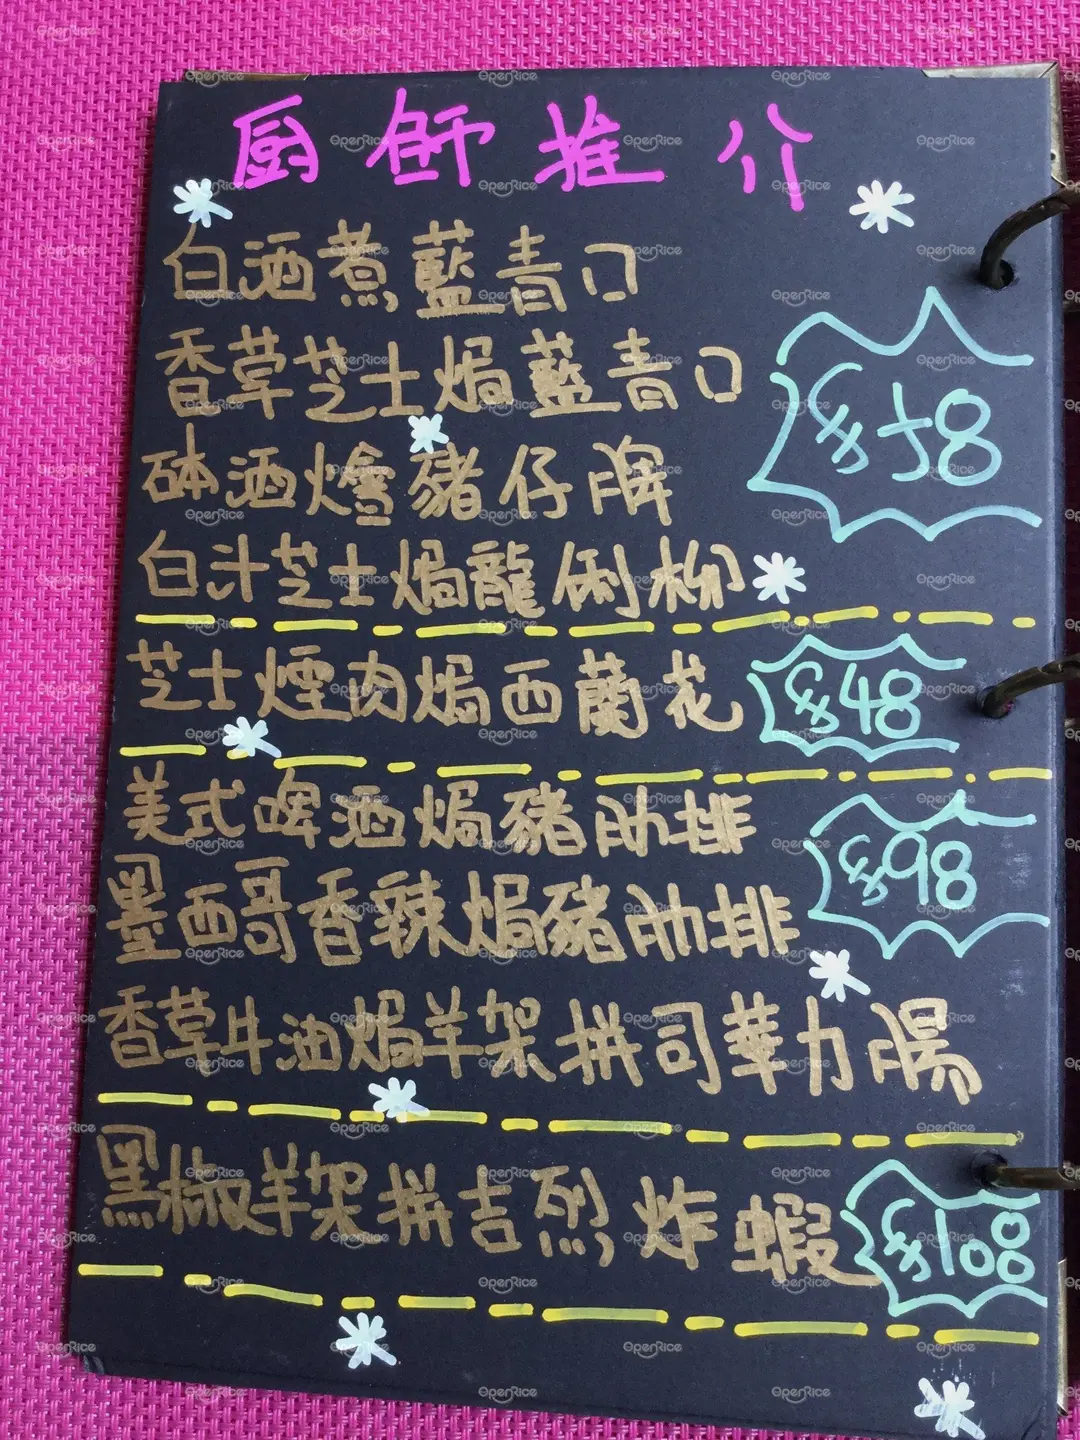 厨師推介
白酒煮藍青口
香草芝士焗藍青口
砵酒燴豬仔脾
白汁芝士焗龍俐柳
$58
芝士煙肉焗西蘭花
$48
美式啤酒焗豬肋排
墨西哥香辣焗豬肋排
$98
香草牛油焗羊架拼司華力腸
黑椒羊架拼吉烈炸蝦
$108